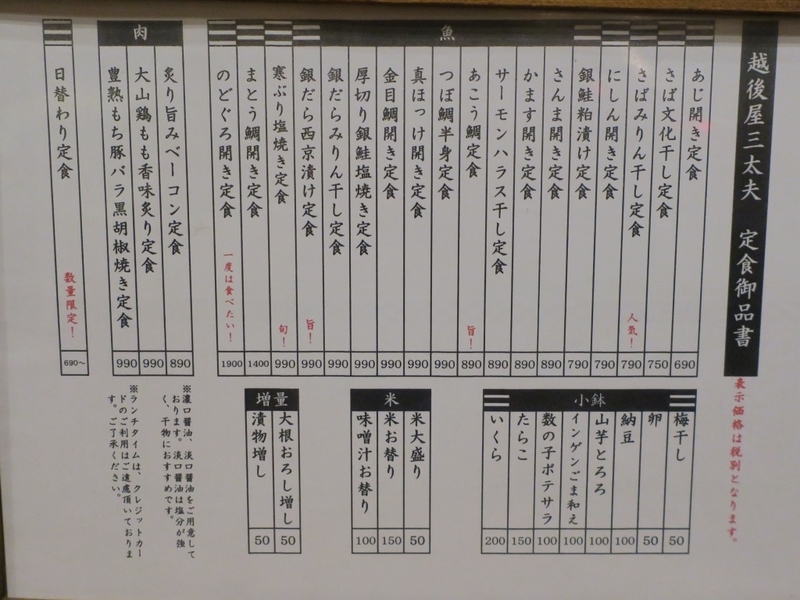 越後屋三太夫 定食御品書
表示価格は税別となります。
魚
あじ開き定食 690
さば文化干し定食 750
さばみりん干し定食 人気! 790
にしん開き定食 790
銀鮭粕漬け定食 790
さんま開き定食 890
かます開き定食 890
サーモンハラス干し定食 890
あこう鯛定食 旨! 890
つぼ鯛半身定食 990
真ほっけ開き定食 990
金目鯛開き定食 990
厚切り銀鮭塩焼き定食 990
銀だらみりん干し定食 990
銀だら西京漬け定食 旨! 990
寒ぶり塩焼き定食 旬! 990
まとう鯛開き定食 1400
のどぐろ開き定食 一度は食べたい! 1900
肉
炙り旨みベーコン定食 890
大山鶏もも香味炙り定食 990
豊熟もち豚バラ黒胡椒焼き定食 990
日替わり定食 数量限定! 690~
小鉢
梅干し 50
卵 50
納豆 100
山芋とろろ 100
インゲンごま和え 100
数の子ポテサラ 100
たらこ 150
いくら 200
米
米大盛り 50
米お替り 150
味噌汁お替り 100
増量
大根おろし増し 50
漬物増し 50
※濃口醤油、淡口醤油をご用意して
おります。淡口醤油は塩分が強
く、干物におすすめです。
※ランチタイムは、クレジットカー
ドのご利用はご遠慮頂いておりま
す。ご了承ください。